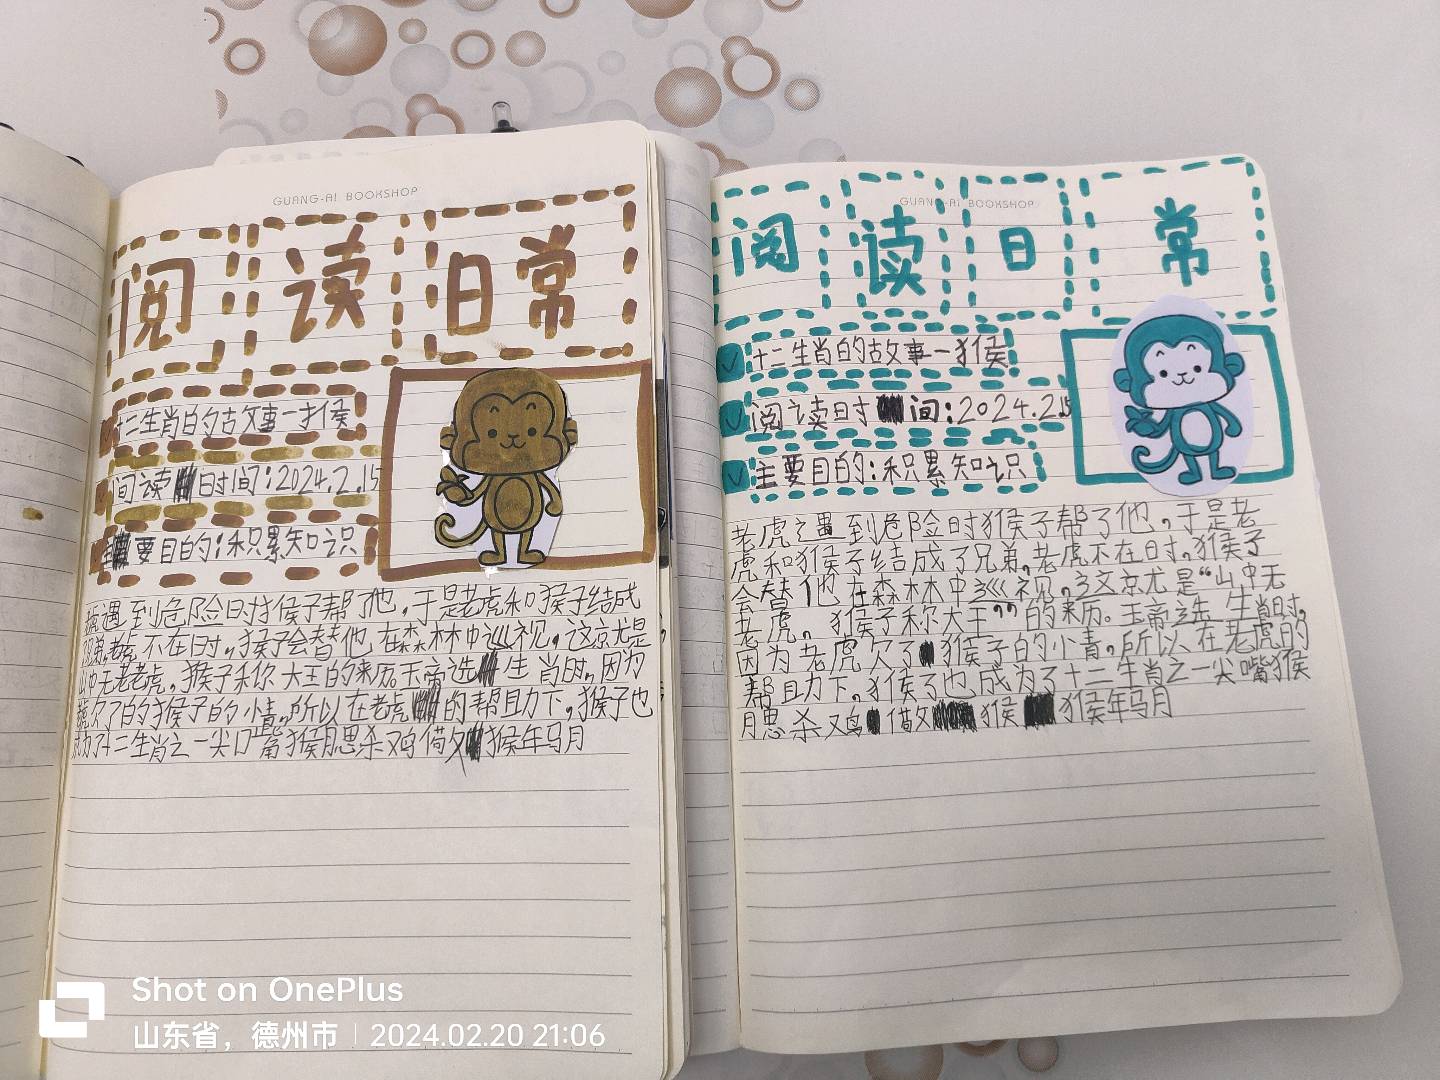 GUANG-AI BOOKSHOP
阅读日常
十二生肖的古故事一猴
间读日时间:2024.2.15
要目的:积累知识
遇到危险日时猴子帮了他,于是老虎和猴子结成
兄弟,老虎不在日时,猴子会替他在森林中巡视,这就是
山中无老老虎,猴子称大王的来历玉帝选生肖时,因为
欠了的猴子的小情,所以在老虎的帮助下,猴子也
成为了十二生肖之一尖嘴猴腮杀鸡儆猴年马月
GUANG-AI BOOKSHOP
阅读日常
十二生肖的古故事一猴
阅读日时间:2024.2.15
主要目的:积累知识
老虎之遇到危险时猴子帮了他,于是老
虎和猴子结成了兄弟,老虎不在时,猴子
会替他在森林中巡视,这就是“山中无
老虎,猴子称大王”的来历。玉帝选生肖时,
因为老虎欠了猴子的小情,所以在老虎的
帮助下,猴子也成为了十二生肖之一尖嘴猴
腮杀鸡儆猴猴年马月
Shot on OnePlus
山东省，德州市 | 2024.02.20 21:06